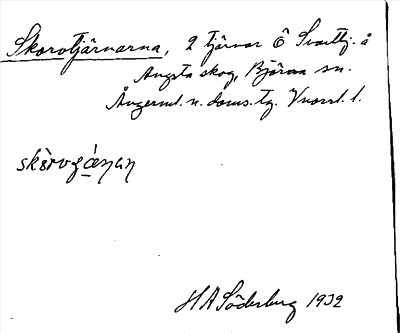 Skorotjärnarna, 2 tjärnar Ö Svarttj. å
Angsta skog, Björna sn.
Ångerml. n. doms. tg. Vnorrl. l.
H A Söderberg 1932